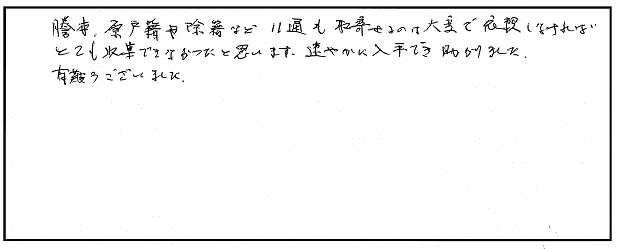 謄本、原戸籍や除籍など11通も取寄せるのは大変で依頼しなければ
とても収集できなかったと思います。速やかに入手でき助かりました。
有難うございました。